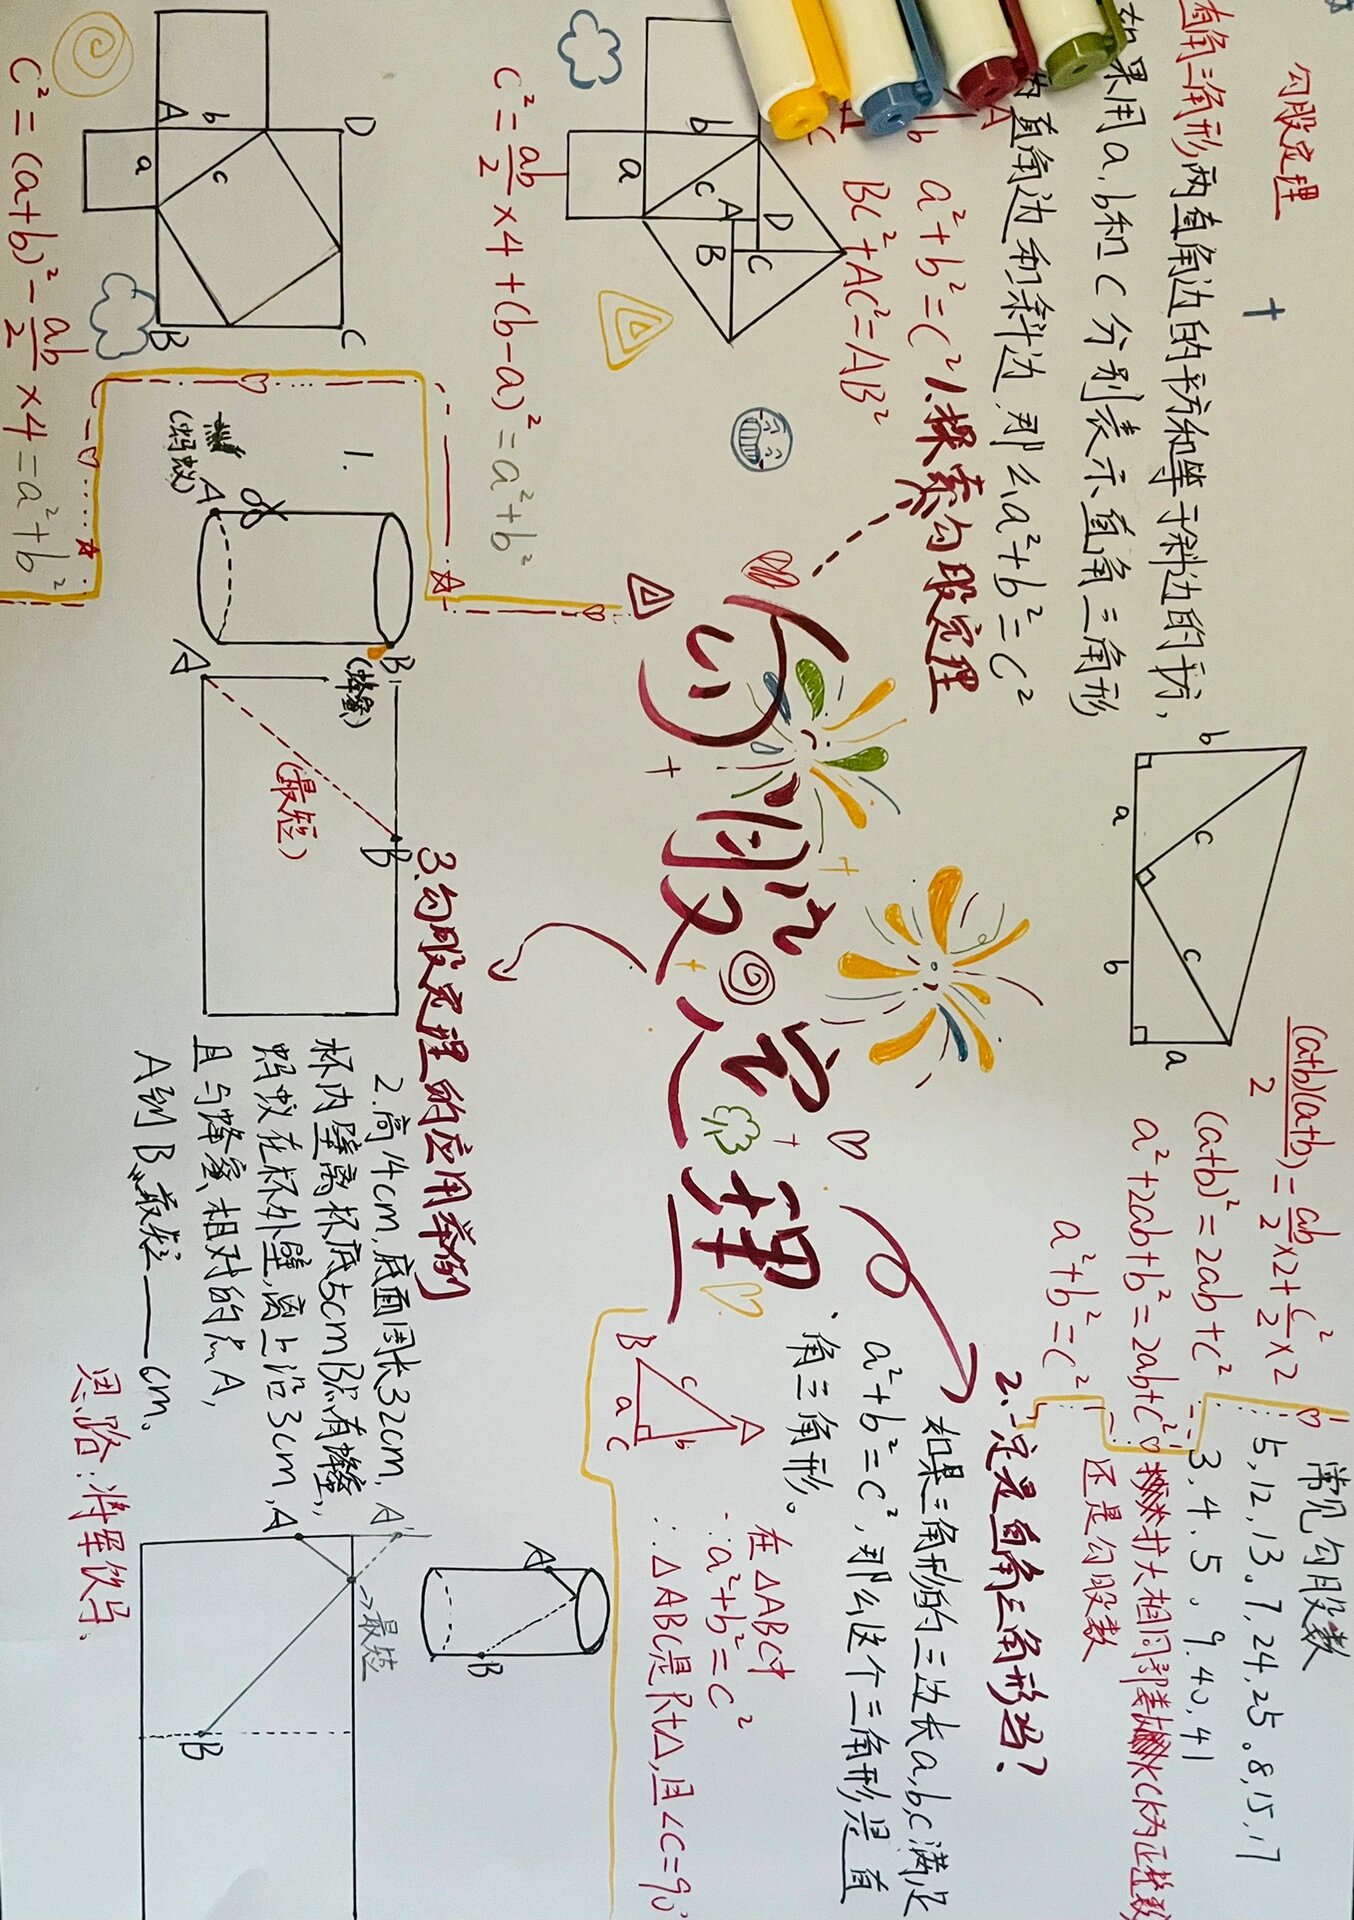 勾股定理
直角三角形两直角边的平方和等于斜边的平方,
如果用a,b和c分别表示直角三角形
的直角边和斜边,那么a²+b²=c²
A
b
C
a²+b²=c²
BC²+AC²=AB²
b
a
c
A
B
C
D
C²=ab/2×4+(b-a)²=a²+b²
A
b
D
a
c
B
C
C²=(a+b)²-ab/2×4=a²+b²
1.探索勾股定理
勾股定理
b
a
c
c
b
a
(a+b)(a+b)/2=ab/2×2+c²/2×2
(a+b)²=2ab+c²
a²+2ab+b²=2ab+c²
a²+b²=c²
常见勾股数
5,12,13。7,24,25。8,15,17
3,4,5。9,40,41
扩大相同部数k(k为正整数)
还是勾股数
2.一定是直角三角形吗?
如果三角形的三边长a,b,c满足
a²+b²=c²,那么这个三角形是直
角三角形。
B
c
A
a
b
C
在△ABC中
∵a²+b²=c²
∴△ABC是Rt△,且∠C=90°
3.勾股定理的应用举例
1.
A
(蚂蚁)
B
(蜂蜜)
A
B
(最短)
2.高14cm,底面周长32cm,
杯内壁离杯底5cmB点有蜂蜜,
蚂蚁在杯外壁,离上沿3cm,
且与蜂蜜相对的点A,
A到B最短——cm。
思路:将军饮马
A
B
A'
A
→最短
B